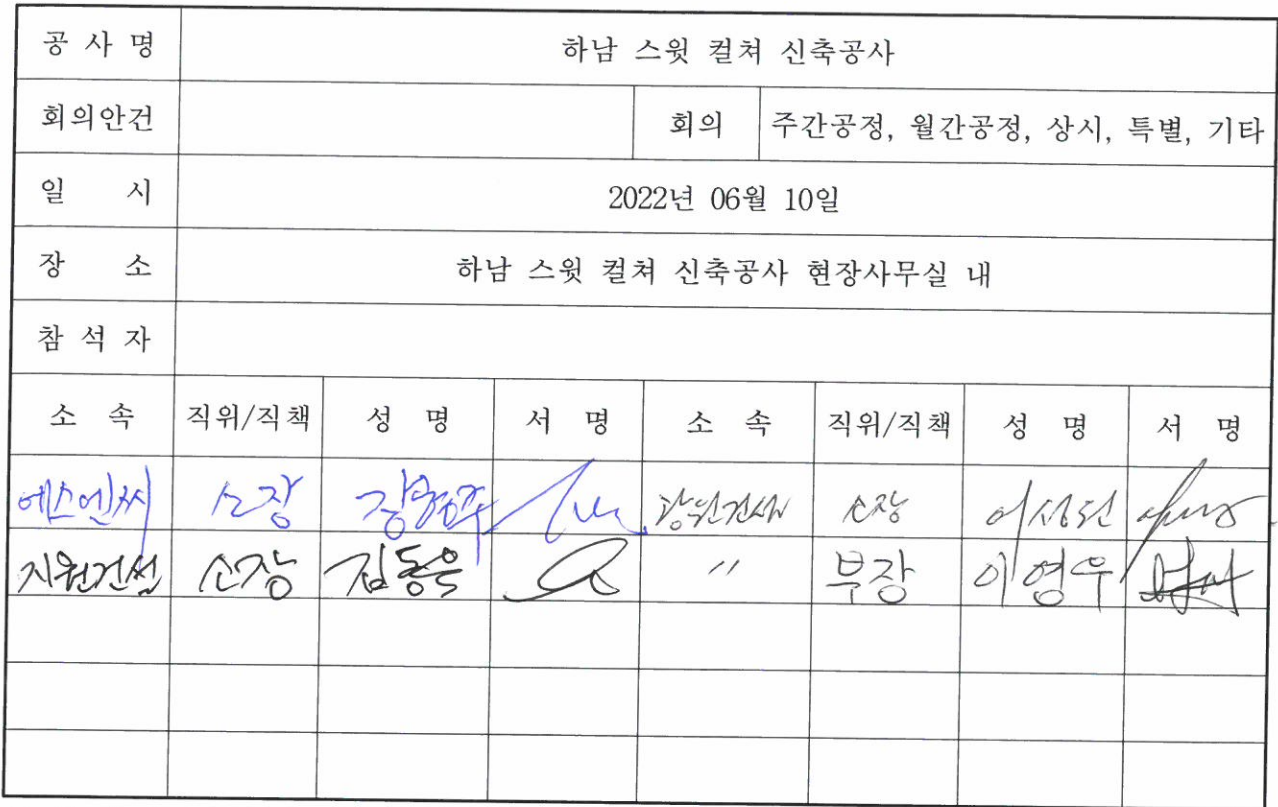 공 사 명 하남 스윗 컬쳐 신축공사
회의안건 회의 주간공정, 월간공정, 상시, 특별, 기타
일 시 2022년 06월 10일
장 소 하남 스윗 컬쳐 신축공사 현장사무실 내
참 석 자
소 속 직위/직책 성 명 서 명 소 속 직위/직책 성 명 서 명
에스엔씨 소장 소장
지원건설 소장 김동욱 〃 부장 이영우